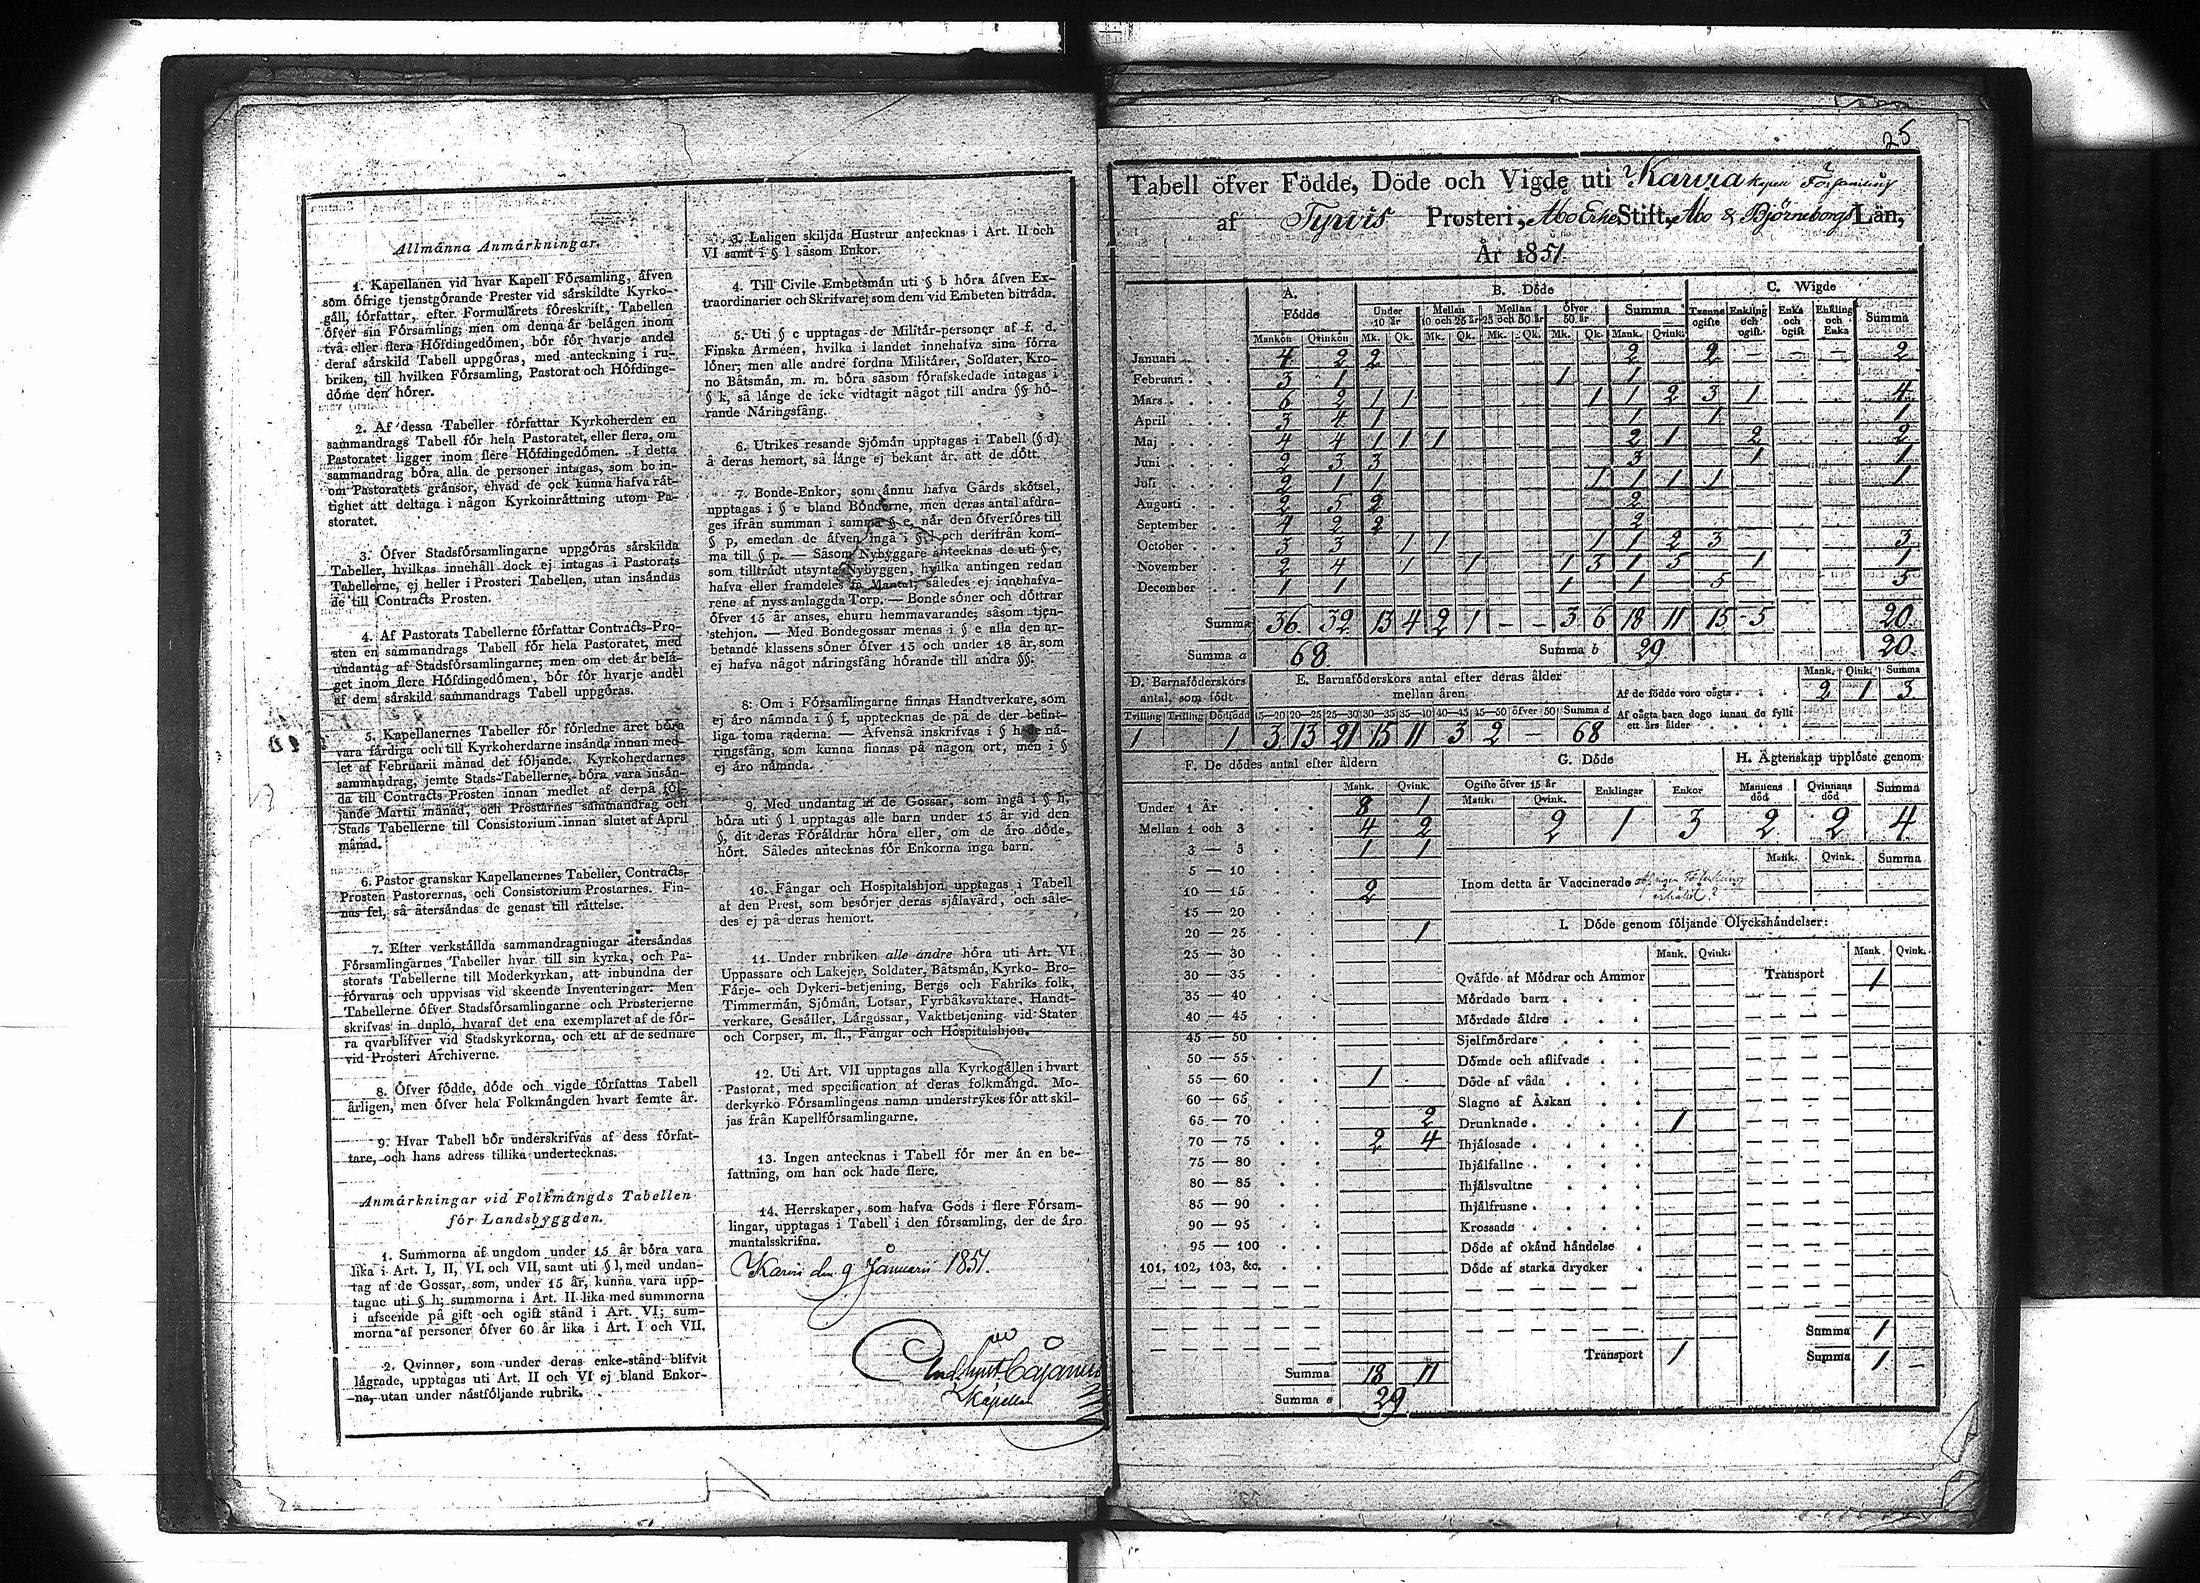 Allmånna Anmårkningar.
1. Kapellanen vid hvar Kapell Fòrsamling, åfven
som ófrige tjenstgórande Prester vid sårskildte Kyrko-
gåll, fórfattar, efter Formulårets fóreskrift, Tabellen
ófver sin Fórsamling; men om denna år belågen inom
två eller flera Hófdingedómen, bór fór hvarje andel
deraf sårskild Tabell uppgóras, med anteckning i ru-
briken, till hvilken Fórsamling, Pastorat och Hófdinge-
dóme den hórer.
2. Af dessa Tabeller fórfattar Kyrkoherden en
sammandrags Tabell fór hela Pastoratet, eller flera, om
Pastoratet ligger inom flere Hófdingedómen. I detta
sammandrag bóra alla de personer intagas, som bo in-
om Pastoratets grånsor, ehvad de ock kunna hafva råt-
tighet att deltaga i någon Kyrkoinråttning utom Pa-
storatet.
3. Ófver Stadsfórsamlingarne uppgóras sårskilda
Tabeller, hvilkas innehåll dock ej intagas i Pastorats
Tabellerne, ej heller i Prosteri Tabellen, utan insåndas
de till Contracts Prosten.
4. Af Pastorats Tabellerne fórfattar Contracts-Pro-
sten en sammandrags Tabell fór hela Pastoratet, med
undantag af Stadsfórsamlingarne; men om det år belå-
get inom flere Hófdingedómen, bór fór hvarje andel
af dem sårskild sammandrags Tabell uppgóras.
5. Kapellanernes Tabeller fór fórledne året bóra
vara fårdiga och till Kyrkoherdarne insånda innan med-
let af Februarii månad det fóljande. Kyrkoherdarnes
sammandrag, jemte Stads-Tabellerne, bóra vara insån-
da till Contracts Prosten innan medlet af derpå fól-
jande Martii månad, och Prostarnes sammandrag och
Stads Tabellerne till Consistorium innan slutet af April
månad.
6. Pastor granskar Kapellanernes Tabeller, Contracts-
Prosten Pastorernas, och Consistorium Prostarnes. Fin-
nas fel, så återsåndas de genast till råttelse.
7. Efter verkstållda sammandragningar återsåndas
Fórsamlingarnes Tabeller hvar till sin kyrka, och Pa-
storats Tabellerne till Moderkyrkan, att inbundna der
fórvaras och uppvisas vid skeende Inventeringar. Men
Tabellerne ófver Stadsfórsamlingarne och Prosterierne
skrifvas in duplo, hvaraf det ena exemplaret af de fór-
ra qvarblifver vid Stadskyrkorna, och ett af de sednare
vid Prosteri Archiverne.
8. Ófver fódde, dóde och vigde fórfattas Tabell
årligen, men ófver hela Folkmångden hvart femte år.
9. Hvar Tabell bór underskrifvas af dess fórfat-
tare, och hans adress tillika undertecknas.
Anmårkningar vid Folkmångds Tabellen
fór Landsbyggden.
1. Summorna af ungdom under 15 år bóra vara
lika i Art. I, II, VI. och VII, samt uti § l, med undan-
tag af de Gossar, som, under 15 år, kunna vara upp-
tagne uti § h; summorna i Art. II lika med summorna
i afseende på gift och ogift stånd i Art. VI; sum-
morna af personer ófver 60 år lika i Art. I och VII.
2. Qvinnor, som under deras enke-stånd blifvit
lågrade, upptagas uti Art. II och VI ej bland Enkor-
na, utan under nåstfóljande rubrik.
3. Laligen skiljda Hustrur antecknas i Art. II och
VI samt i § l såsom Enkor.
4. Till Civile Embetsmån uti § b hóra åfven Ex-
traordinarier och Skrifvare, som dem vid Embeten bitråda.
5. Uti § c upptagas de Militår-personer af f. d.
Finska Armeen, hvilka i landet innehafva sina fórra
lóner; men alle andre fordna Militårer, Soldater, Kro-
no Båtsmån, m. m. bóra såsom fórafskedade intagas i
§ k, så långe de icke vidtagit något till andra §§ hó-
rande Nåringsfång.
6. Utrikes resande Sjómån upptagas i Tabell (§ d)
å deras hemort, så långe ej bekant år, att de dótt.
7. Bonde-Enkor, som ånnu hafva Gårds skótsel,
upptagas i § e bland Bónderne, men deras antal afdra-
ges ifrån summan i samma § e, når den ófverfóres till
§ p, emedan de åfven ingå i § l och derifrån kom-
ma till § p. — Såsom Nybyggare antecknas de uti § e,
som tilltrådt utsynta Nybyggen, hvilka antingen redan
hafva eller framdeles få Mantal, således ej innehafva-
rene af nyss anlaggda Torp. — Bonde sóner och dóttrar
ófver 15 år anses, ehuru hemmavarande; såsom tjen-
stehjon. — Med Bondegossar menas i § e alla den ar-
betande klassens sóner ófver 15 och under 18 år, som
ej hafva något nåringsfång hórande till andra §§.
8: Om i Fórsamlingarne finnas Handtverkare, som
ej åro nåmnda i § f, upptecknas de på de der befint-
liga toma raderna. — Åfvenså inskrifvas i § h de nå-
ringsfång, som kunna finnas på någon ort, men i §
ej åro nåmnda.
9. Med undantag af de Gossar, som ingå i § h,
bóra uti § l upptagas alle barn under 15 år vid den
§, dit deras Fóråldrar hóra eller, om de åro dóde,
hórt. Således antecknas fór Enkorna inga barn.
10. Fångar och Hospitalshjon upptagas i Tabell
af den Prest, som besórjer deras sjålavård, och såle-
des ej på deras hemort.
11. Under rubriken alle andre hóra uti Art. VI
Uppassare och Lakejer, Soldater, Båtsmån, Kyrko- Bro-
Fårje- och Dykeri-betjening, Bergs och Fabriks folk,
Timmermån, Sjómån, Lotsar, Fyrbåksvaktare, Handt-
verkare, Gesåller, Lårgossar, Vaktbetjening vid Stater
och Corpser, m. fl., Fångar och Hospitalshjon.
12. Uti Art. VII upptagas alla Kyrkogållen i hvart
Pastorat, med specification af deras folkmångd. Mo-
derkyrko Fórsamlingens namn understrykes fór att skil-
jas från Kapellfórsamlingarne.
13. Ingen antecknas i Tabell fór mer ån en be-
fattning, om han ock hade flere.
14. Herrskaper, som hafva Gods i flere Fórsam-
lingar, upptagas i Tabell i den fórsamling, der de åro
mantalsskrifna.
Karvi den 9 Januarii 1851.
Cajanus
Kapellan
25
Tabell öfver Födde, Döde och Vigde uti Karvia Kapell Församling
af Tyrvis Prosteri, Åbo Erke Stift, Åbo & Björneborgs Län,
År 1851.
A. Födde B. Döde C. Wigde
Under 10 år Mellan 10 och 25 år Mellan 25 och 50 år Öfver 50 år Summa Tvenne ogifte Enkling och ogift Enka och ogift Enkling och Enka Summa
Mankön Qvinkön Mk. Qk. Mk. Qk. Mk. Qk. Mk. Qk. Mank. Qvink.
Januari 4 2 2 2 2 — — — 2
Februari 3 1 1 1
Mars 6 2 1 1 1 1 2 3 1 4
April 3 4 1 1 1 1
Maj 4 4 1 1 1 2 1 2 2
Juni 2 3 3 3 1 1
Juli 2 1 1 1 1 1 1 1
Augusti 2 5 2 2
September 4 2 2 2
October 3 3 1 1 1 1 2 3 3
November 2 4 1 1 1 3 1 5 1 1
December 1 1 1 1 5 5
Summa 36 32 13 4 2 1 — — 3 6 18 11 15 5 20
Summa a 68 Summa b 29 20
D. Barnaföderskors antal, som födt
E. Barnaföderskors antal efter deras ålder mellan åren
Mank. Qvink. Summa
Af de födde voro oägta 2 1 3
Af oägta barn dogo innan de fyllt ett års ålder
Tvilling Trilling Dödfödd 15—20 20—25 25—30 30—35 35—40 40—45 45—50 öfver 50 Summa d
1 1 3 13 21 15 11 3 2 — 68
F. De dödes antal efter åldern
Mank. Qvink.
Under 1 År 8 1
Mellan 1 och 3 4 2
3 — 5 1 1
5 — 10
10 — 15 2
15 — 20
20 — 25 1
25 — 30
30 — 35
35 — 40
40 — 45
45 — 50
50 — 55
55 — 60 1
60 — 65
65 — 70 2
70 — 75 2 4
75 — 80
80 — 85
85 — 90
90 — 95
95 — 100
101, 102, 103, &c.
Summa 18 11
Summa e 29
G. Döde
Ogifte öfver 15 år Enklingar Enkor
Mank. Qvink.
2 1 3
H. Ägtenskap upplöste genom
Mannens död Qvinnans död Summa
2 2 4
Mank. Qvink. Summa
Inom detta år Vaccinerade
I. Döde genom följande Olyckshändelser:
Mank. Qvink. Mank. Qvink.
Qväfde af Mödrar och Ammor Transport 1
Mördade barn
Mördade äldre
Sjelfmördare
Dömde och aflifvade
Döde af våda
Slagne af Åskan
Drunknade 1
Ihjälosade
Ihjälfallne
Ihjälsvultne
Ihjälfrusne
Krossade
Döde af okänd händelse
Döde af starka drycker
Summa 1
Transport 1 Summa 1 —